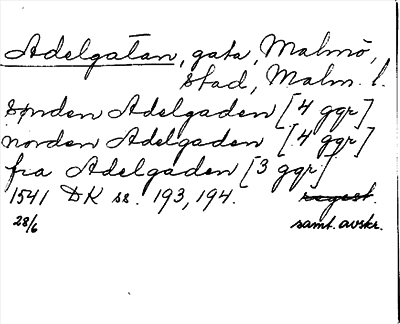 Adelgatan, gata, Malmö,
stad, Malm. l.
synden Adelgaden [4 ggr]
norden Adelgaden [4 ggr]
fra Adelgaden [3 ggr]
1541 DK ss. 193, 194. regest.
28/6 samt. avskr.